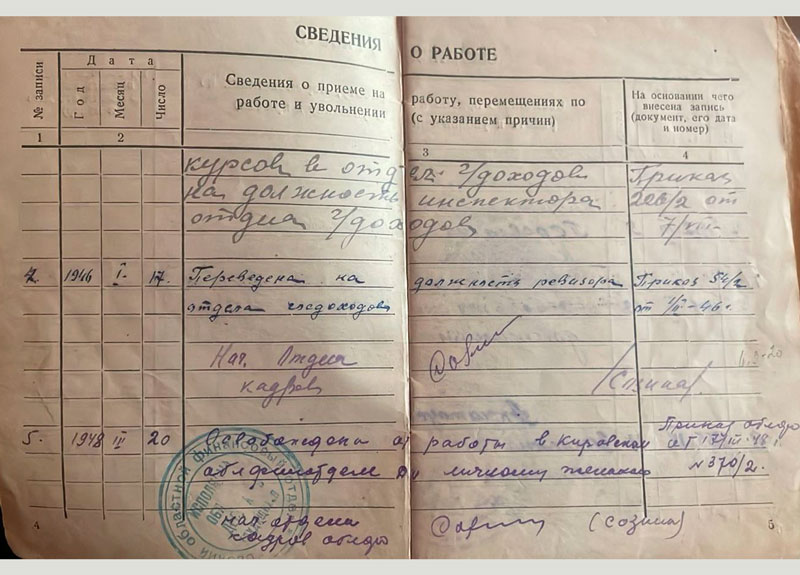 СВЕДЕНИЯ О РАБОТЕ
№ записи
Дата
Год
Месяц
Число
Сведения о приеме на работу, перемещениях по
работе и увольнении (с указанием причин)
На основании чего
внесена запись
(документ, его дата
и номер)
1 2 3 4
курсов в отдел г/доходов Приказ
на должность инспектора 206/2 от
отдела г/доходов
1946 I 17 Переведена на должность ревизора Приказ 54/2
отдела госдоходов от
Нач. Отдела
кадров
5. 1948 III 20 Освобождена от работы в Кировском Приказ облфо
облфинотделе по личному желанию №370/2.
нач. отдела (Созина)
кадров облфо
4 5